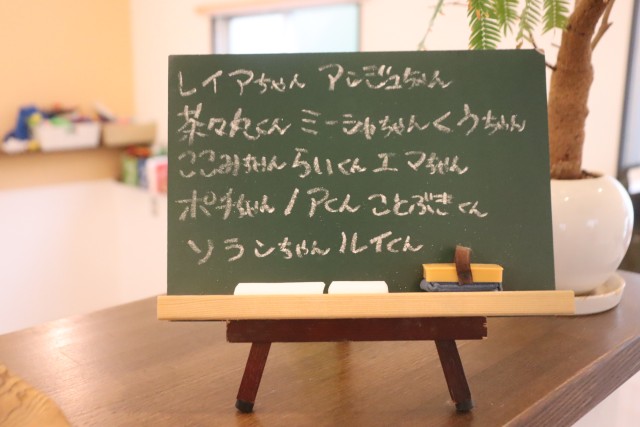 レイアちゃん アンジュちゃん
茶々丸くん ミーシャちゃん くうちゃん
ここみちゃん らいくん エマちゃん
ポチちゃん ノアくん ことぶきくん
ソランちゃん ルイくん